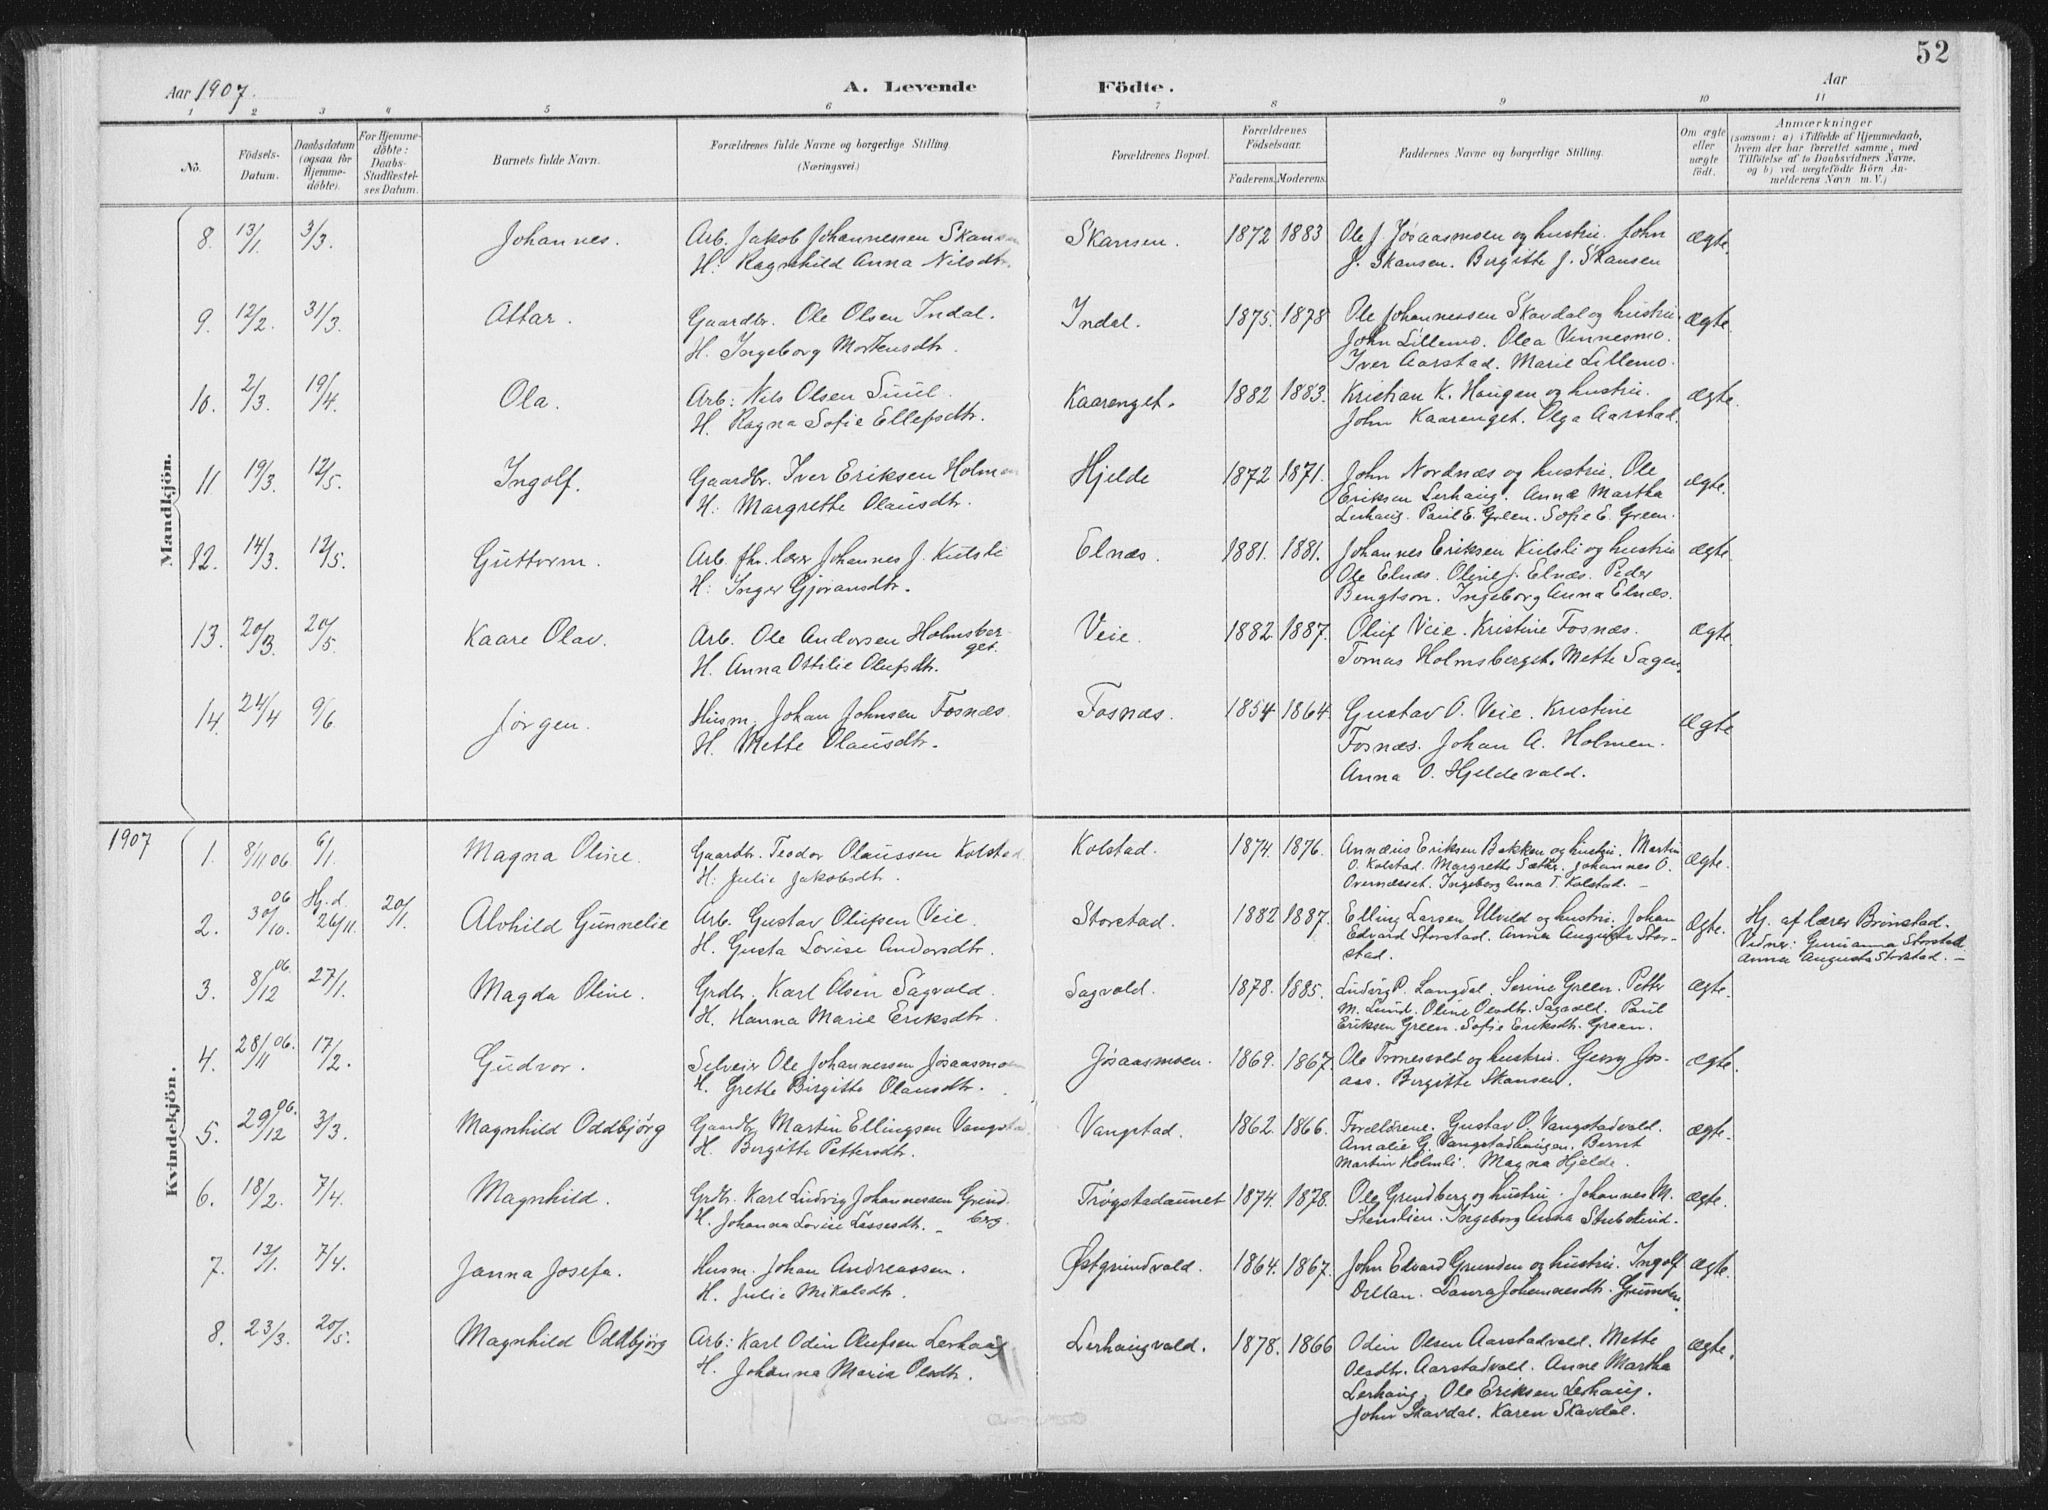 52
Aar 1907.
A. Levende Födte.
Aar
1 2 3 4 5 6 7 8 9 10 11
No.
Födsels-Datum.
Daabsdatum (ogsaa for Hjemme-döbte).
For Hjemme-döbte: Daabs-Stadfæstel-ses Datum.
Barnets fulde Navn.
Forældrenes fulde Navne og borgerlige Stilling (Næringsvei.)
Forældrenes Bopæl.
Forældrenes Födselsaar.
Faderens. Moderens.
Faddernes Navne og borgerlige Stilling.
Om ægte eller uægte födt.
Anmærkninger
(saasom: a) i Tilfælde af Hjemmedaab,
hvem der har forrettet samme, med
Tilföielse af to Daabsvidners Navne,
og b) ved uægtefödte Börn An-
melderens Navn m. V.)
Mandkjön.
8. 13/1. 3/3. Johannes. Arb. Jakob Johannessen Skansen Skansen. 1872 1883 Ole J. Jøsaasmoen og hustru. John ægte.
H: Ragnhild Anna Nilsdtr. J. Skansen. Birgitte J. Skansen
9. 12/2. 31/3. Attar. Gaardbr. Ole Olsen Indal. Indal. 1875. 1878 Ole Johannessen Skavdal og hustru. ægte.
H. Ingeborg Mortensdtr. John Lillemo. Olea Vinnesmo.
Iver Aarstad. Marie Lillemo.
10. 2/3. 19/4. Ola. Arb: Nils Olsen Suul. Kaarenget. 1882 1883. Kristian K. Haugen og hustru. ægte.
H. Ragna Sofie Ellefsdtr. John Kaarenget. Olga Aarstad.
11. 19/3. 12/5. Ingolf. Gaardbr. Iver Eriksen Holmen Hjelde 1872 1871. John Nordnæs og hustru. Ole ægte.
H: Margrethe Olausdtr. Eriksen Lerhaug. Anne Martha
Lerhaug. Paul E. Green. Sofie E. Green.
12. 14/3. 12/5. Guttorm. Arb. fhv. lærer Johannes J. Kulsli Elnæs. 1881. 1881. Johannes Eriksen Kulsli og hustru ægte.
H: Inger Gjøransdtr. Ole Elnæs. Oline J. Elnæs. Peder
Bengtson. Ingeborg Anna Elnæs.
13. 20/3. 20/5. Kaare Olav. Arb. Ole Andersen Holmsber- Veie. 1882 1887. Oluf Veie. Kristine Fosnæs. ægte.
get.
H. Anna Ottilie Olufsdtr. Tomas Holmsberget. Mette Sagen.
14. 24/4 9/6 Jørgen. Husm. Johan Johnsen Fosnæs. Fosnæs. 1854 1864. Gustav O. Veie. Kristine ægte
H. Mette Olausdtr. Fosnæs. Johan A. Holmen.
Anna O. Hjeldevald.
1907
Kvindekjön.
1. 8/11 06. 6/1. Magna Oline. Gaardbr. Teodor Olaussen Kolstad. Kolstad. 1874. 1876. Annæus Eriksen Bakken og hustru. Martin ægte.
H: Julie Jakobsdtr. O. Kolstad. Margrethe Sæther. Johannes O.
Overnæsset. Ingeborg Anna T. Kolstad. –
2. 30/10. 06 Hj. d. 26/11. 20/1. Alvhild Gunnelie Arb. Gustav Olufsen Veie. Storstad. 1882 1887. Elling Larsen Ulvild og hustru. Johan ægte. Hj. af lærer Brønstad.
H. Gusta Lovise Andorsdtr. Edvard Storstad. Anna Augusta Stor- Vidner: Gurianna Storstad
stad. Anna Augusta Storstad. –
3. 8/12 06. 27/1. Magda Oline. Grdbr. Karl Olsen Sagvold. Sagvold. 1878. 1885. Ludvig P. Langdal. Serine Green. Petter ægte.
H. Hanna Marie Eriksdtr. M. Lund. Oline Olsdtr. Sagvold. Paul
Eriksen Green. Sofie Eriksdtr. Green.
4. 28/11 06. 17/2. Gudvor. Selveier Ole Johannessen Jøsaasmoen Jøsaasmoen. 1869. 1867. Ole Tronesvold og hustru. Georg Jøs- ægte.
H. Grethe Birgitte Olausdtr. aas. Birgitte Skansen.
5. 29/12 06. 3/3. Magnhild Oddbjørg Gaardbr. Martin Ellingsen Vangstad. Vangstad. 1862. 1866. Forældrene. Gustav O. Vangstadvald. ægte.
H. Birgitte Pettersdtr. Amalie G. Vangstadhaugen. Bernt
Martin Holmli. Magna Hjelde.
6. 18/2. 7/4. Magnhild. Grdbr. Karl Ludvig Johannessen Grund- Trøgstadaunet 1874. 1878. Ole Grundberg og hustru. Johannes M. ægte.
berg.
H. Johanna Lovise Lassesdtr. – Stenslien. Ingeborg Anna Stubskind.
7. 13/1. 7/4. Janna Josefa. Husm. Johan Andreassen. Østgrundvald. 1864. 1867. John Edvard Grunden og hustru. Ingolf ægte.
H. Julie Mikalsdtr. Dillan. Laura Johannesdtr. Grunden.
8. 23/3. 20/5. Magnhild Oddbjørg Arb: Karl Odin Olufsen Lerhaug Lerhaugvald. 1878. 1866 Odin Olsen Aarstadvald. Mette ægte.
H. Johanna Maria Olsdtr. Olsdtr. Aarstadvald. Anne Martha
Lerhaug. Ole Eriksen Lerhaug.
John Skavdal. Karen Skavdal.